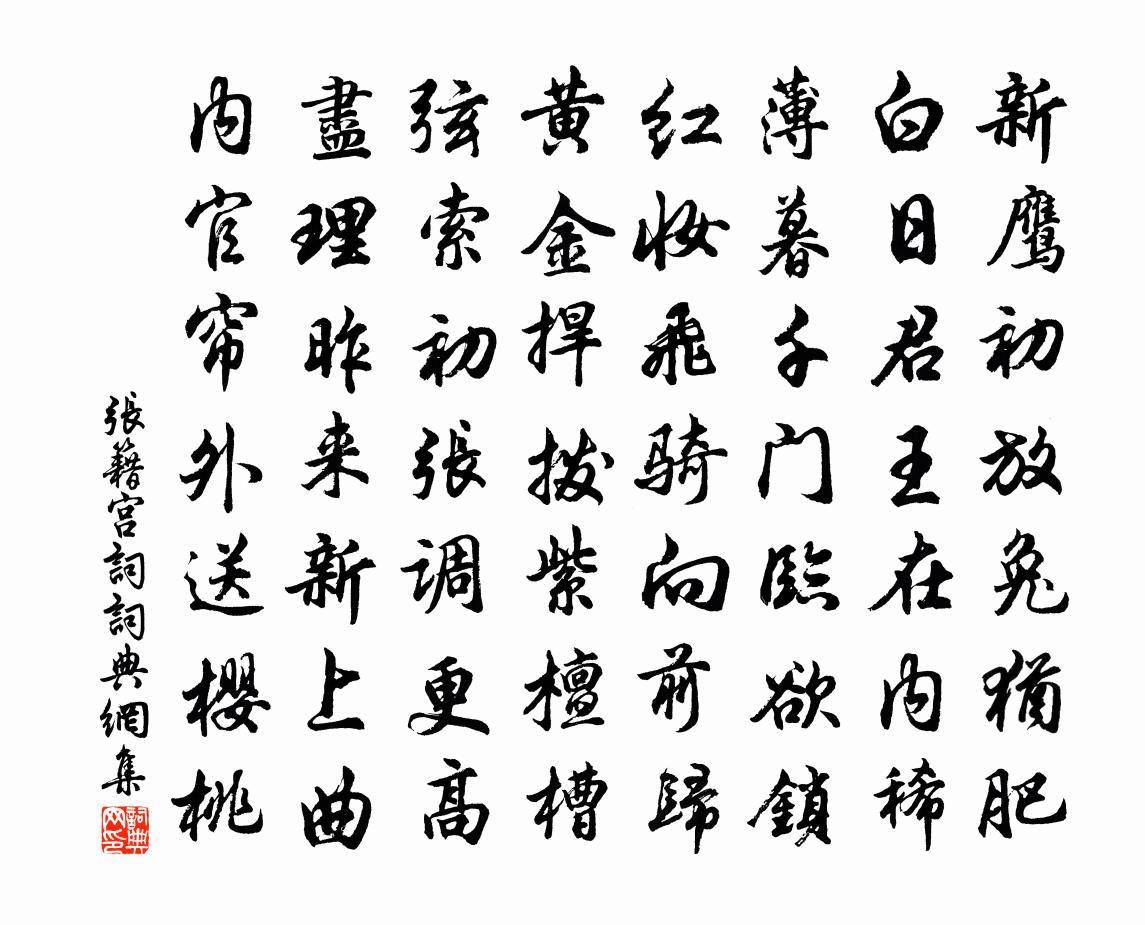 新鹰初放兔犹肥
白日君王在内稀
薄暮千门臨欲鎖
红妆飛骑向前歸
黄金捍拨紫檀槽
弦索初張调更高
盡理昨来新上曲
内官帘外送櫻桃
張籍宫詞詞典網集
詞典网印